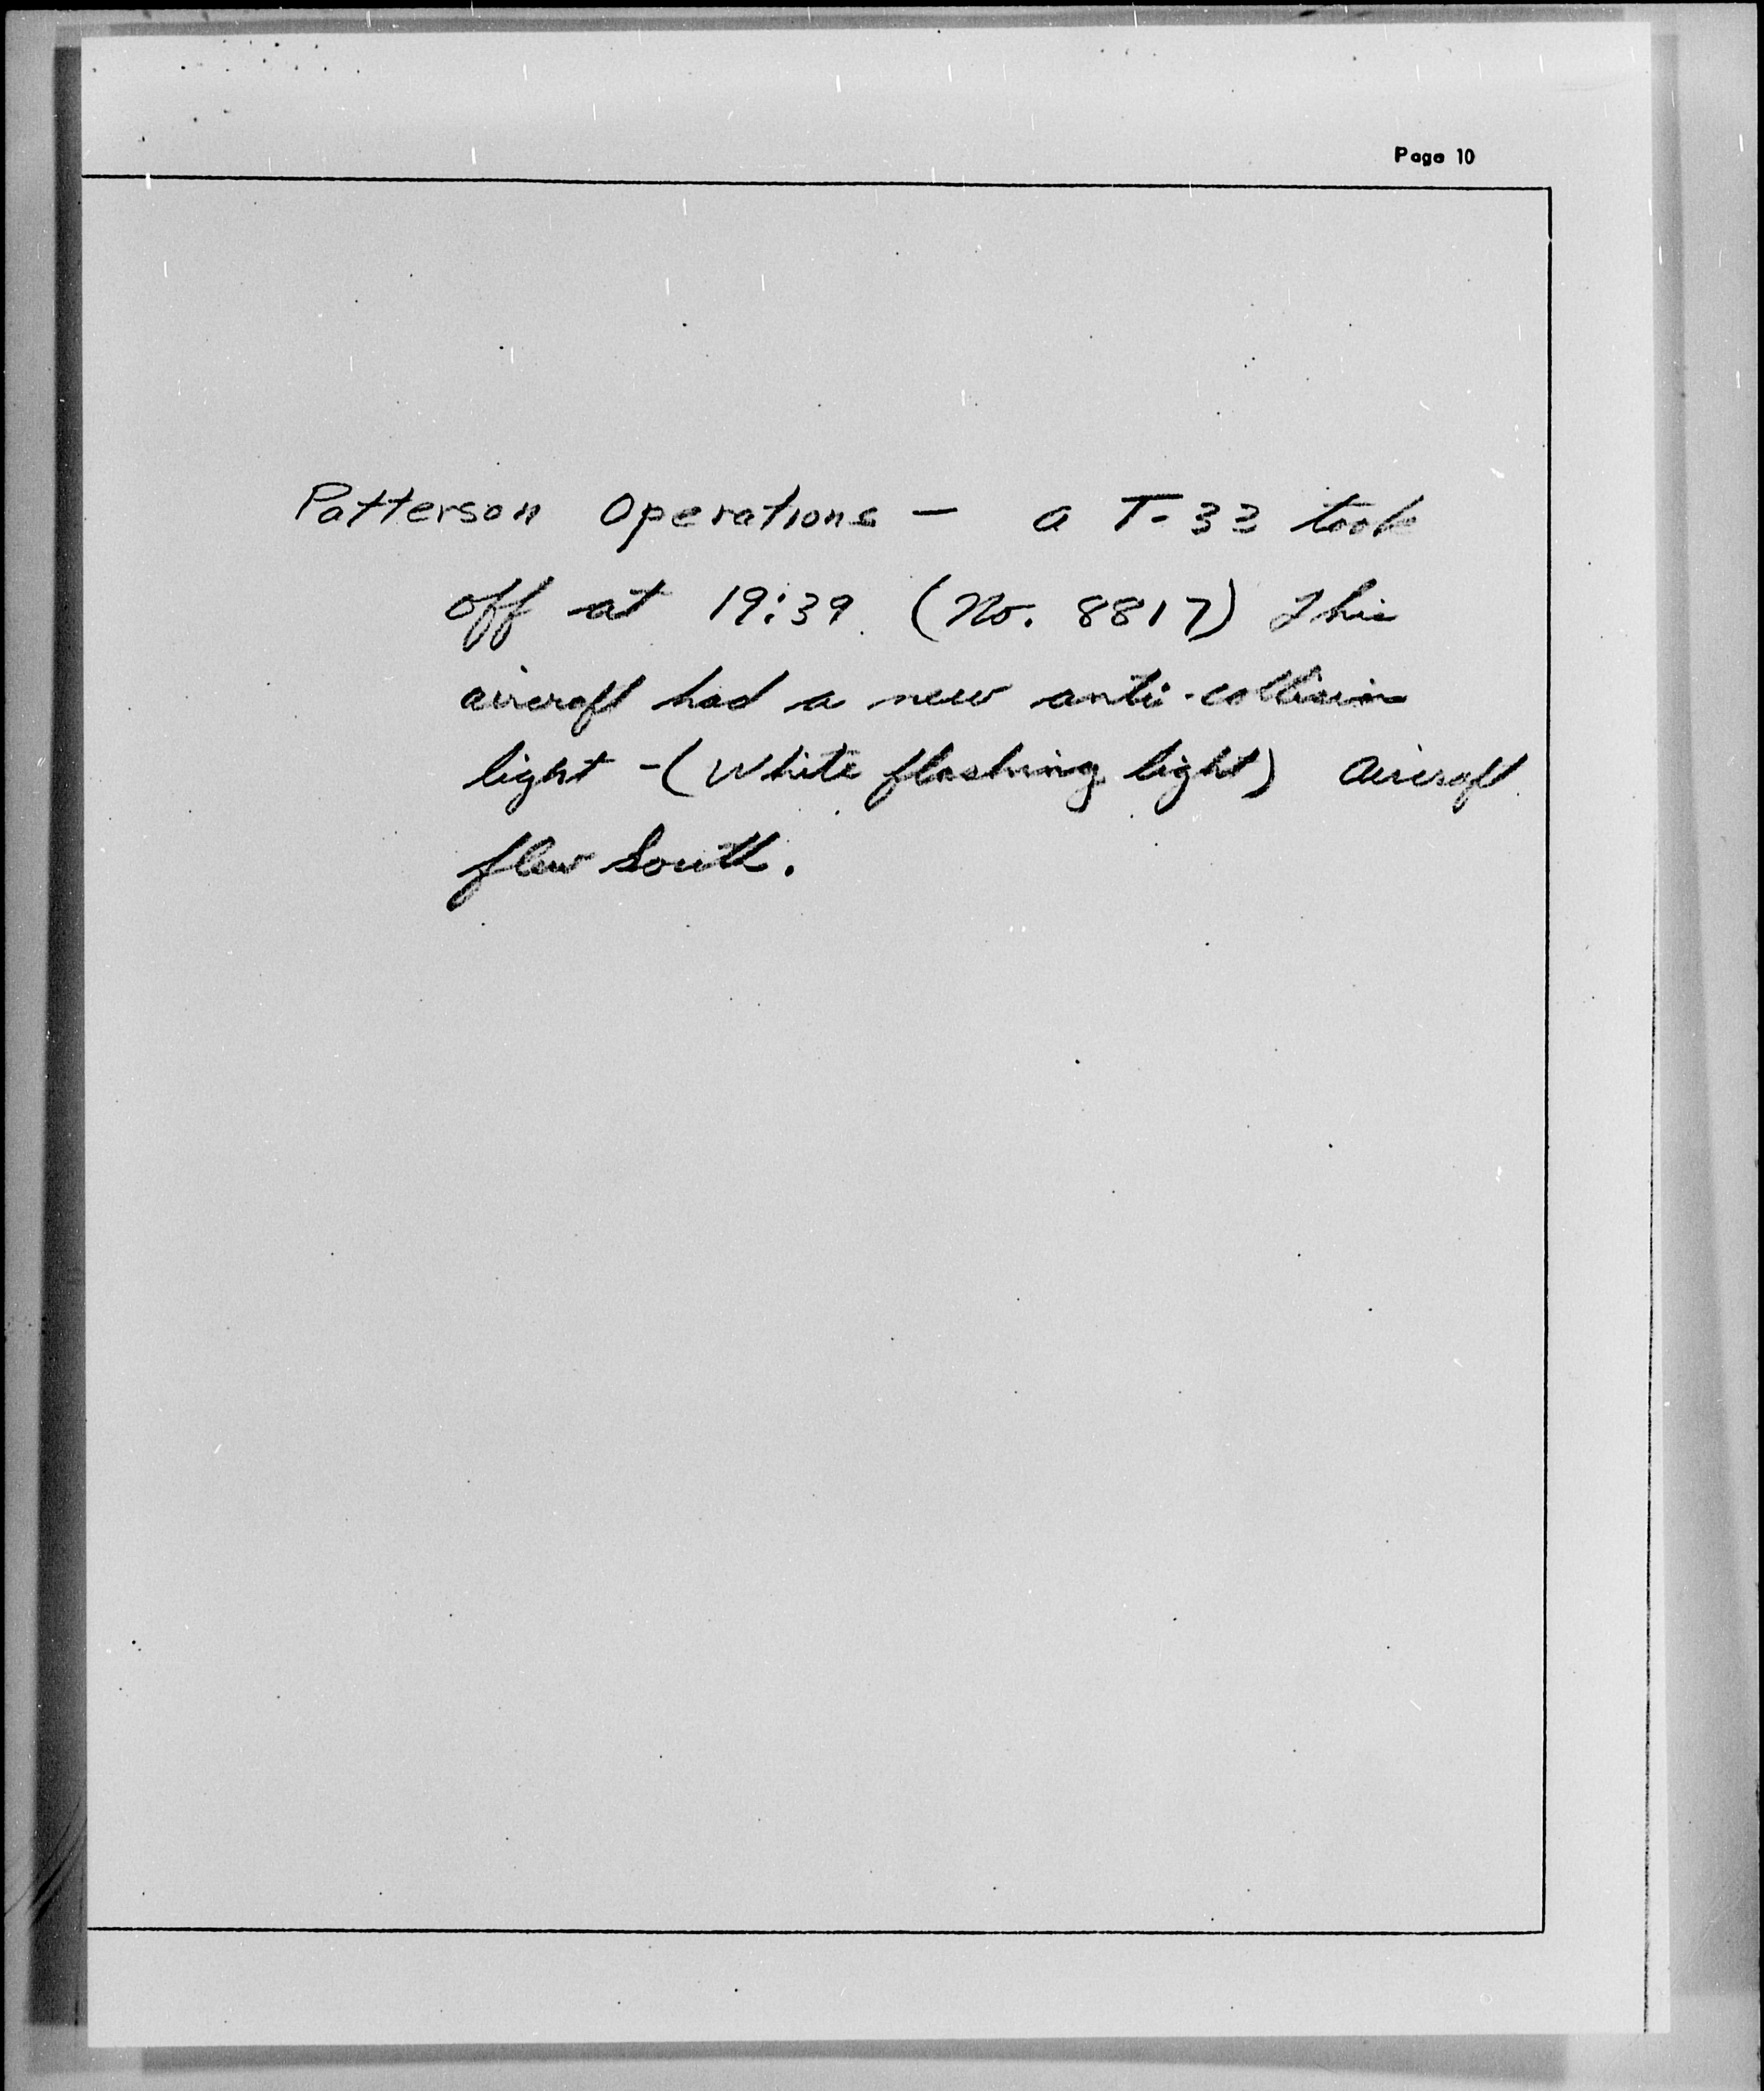 Page 10
Patterson Operations — a T-33 took
off at 19:39. (No. 8817) This
aircraft had a new anti-collision
light -(White flashing light) Aircraft
flew South.